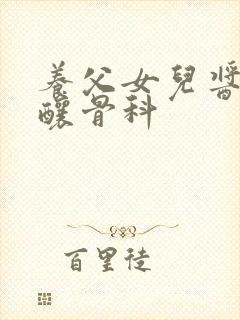 養父女兒醬
釀骨科
百里徒